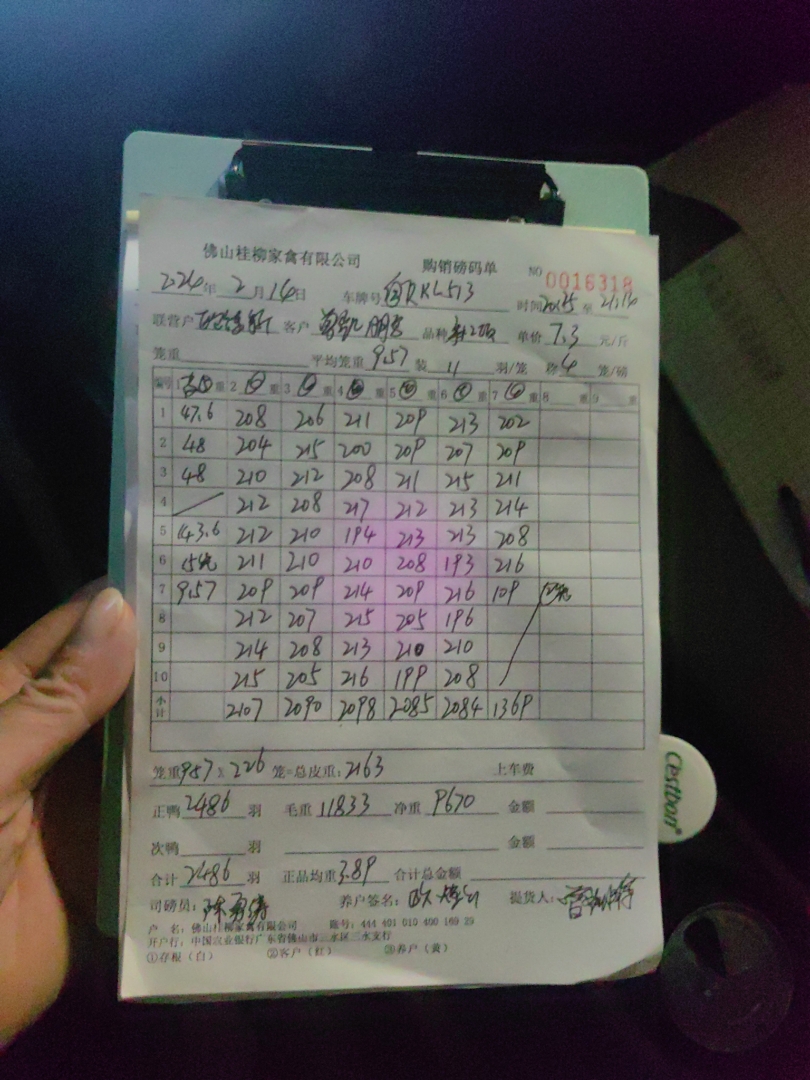 佛山桂柳家禽有限公司 购销磅码单 NO 0016318
2024年 2月14日 车牌号 RKL513 时间20:15至21:16
联营户 客户 品种 单价7.3元/斤
笼重 平均笼重9.57 装11羽/笼 称4笼/磅
编号 1 重 2 重 3 重 4 重 5 重 6 重 7 重 8 重 9 重
1 47.6 208 206 211 209 213 202
2 48 204 215 200 209 207 209
3 48 210 212 208 211 215 211
4 212 208 217 212 213 214
5 143.6 212 210 194 213 213 208
6 15笼 211 210 210 208 193 216
7 9.57 209 209 214 209 216 109 2笼
8 212 207 215 205 196
9 214 208 213 210 210
10 215 205 216 199 208
小计 2107 2090 2098 2085 2084 1369
笼重9.57×226笼=总皮重:2163 上车费
正鸭2486羽 毛重11833 净重9670 金额
次鸭 羽 金额
合计2486羽 正品均重3.89 合计总金额
司磅员: 养户签名: 提货人:
户 名:佛山桂柳家禽有限公司 账号:444 401 010 400 169 29
开户行:中国农业银行广东省佛山市三水区三水支行
①存根(白) ②客户(红) ③养户(黄)
Cestbon®